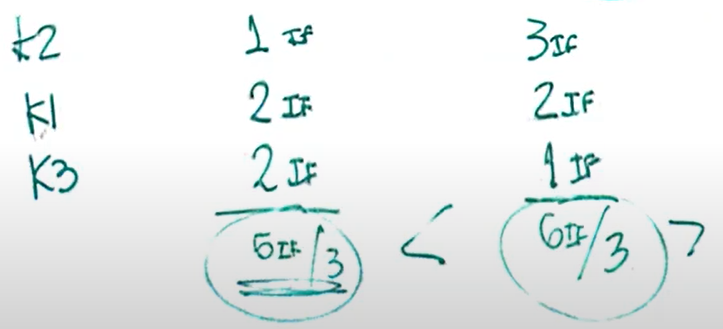 K2 1 IF 3IF
K1 2 IF 2IF
K3 2 IF 1 IF
5IF/3 < 6IF/3 >